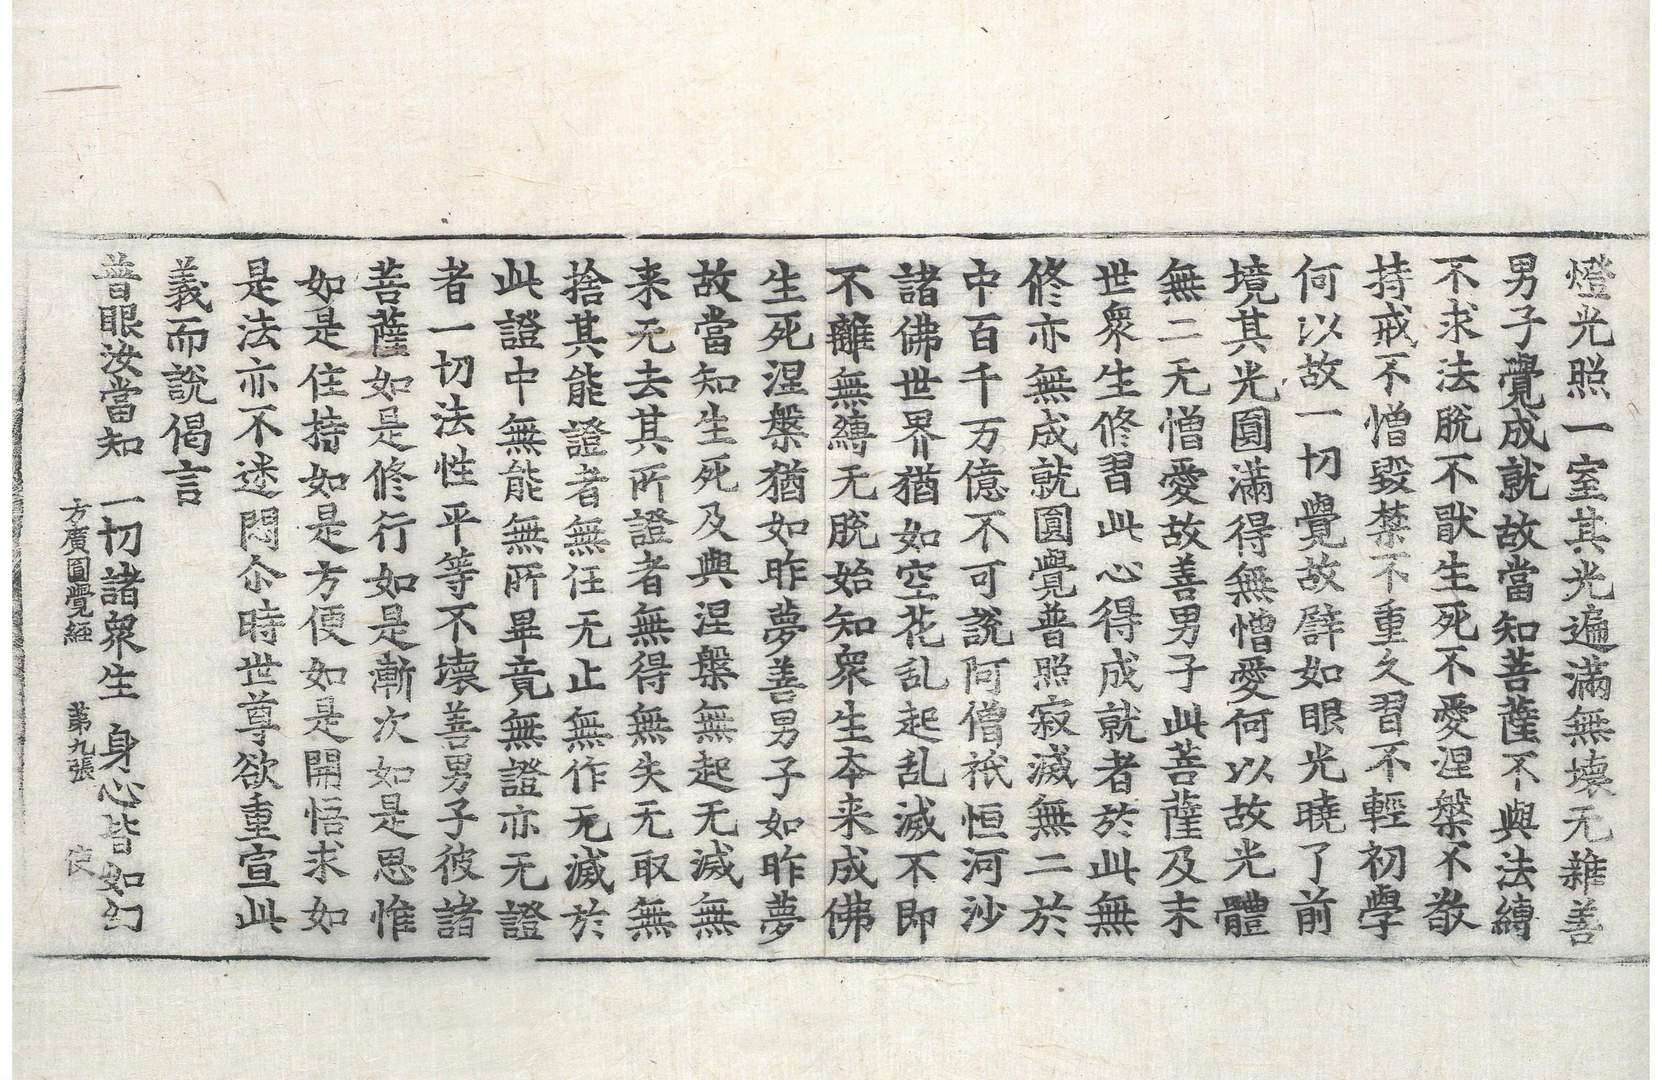 燈光照一室其光遍滿無壞无雜善
男子覺成就故當知菩薩不與法縛
不求法脫不猒生死不愛涅槃不敬
持戒不憎毀禁不重久習不輕初學
何以故一切覺故譬如眼光曉了前
境其光圓滿得無憎愛何以故光體
無二无憎愛故善男子此菩薩及末
世衆生修習此心得成就者於此無
修亦無成就圓覺普照寂滅無二於
中百千万億不可說阿僧祇恒河沙
諸佛世界猶如空花乱起乱滅不即
不離無縛无脫始知衆生夲来成佛
生死涅槃猶如昨夢善男子如昨夢
故當知生死及與涅槃無起无滅無
来无去其所證者無得無失无取無
捨其能證者無任无止無作无滅於
此證中無能無所畢竟無證亦无證
者一切法性平等不壞善男子彼諸
菩薩如是修行如是漸次如是思惟
如是住持如是方便如是開悟求如
是法亦不迷悶尒時世尊欲重宣此
義而說偈言
普眼汝當知　一切諸衆生　身心皆如幻
方廣圓覺經　第九張　使